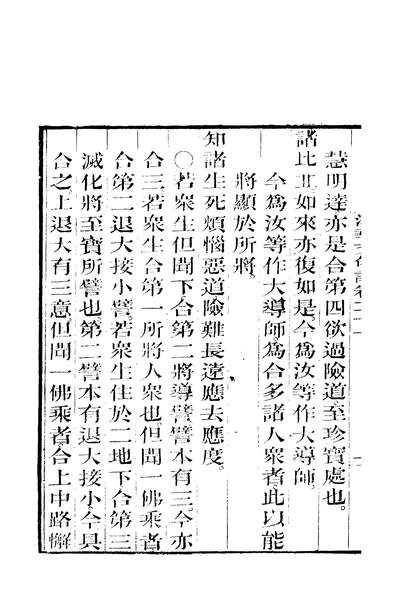 慧明達亦是合第四欲過險道至珍寶處也。
諸比丘如來亦復如是。今爲汝等作大導師。
今爲汝等作大導師。爲合多諸人衆者。此以能
將顯於所將。
知諸生死煩惱惡道險難長遠應去應度。
〇若衆生但聞下合第二將導譬。譬本有三。今亦
合三。若衆生合第一所將人衆也。但聞一佛乘者
合第二退大接小譬。若衆生住於二地下合第三
滅化將至寶所譬也。第二譬本有退大接小。今具
合之。上退大有三意。但聞一佛乘者。合上中路懈